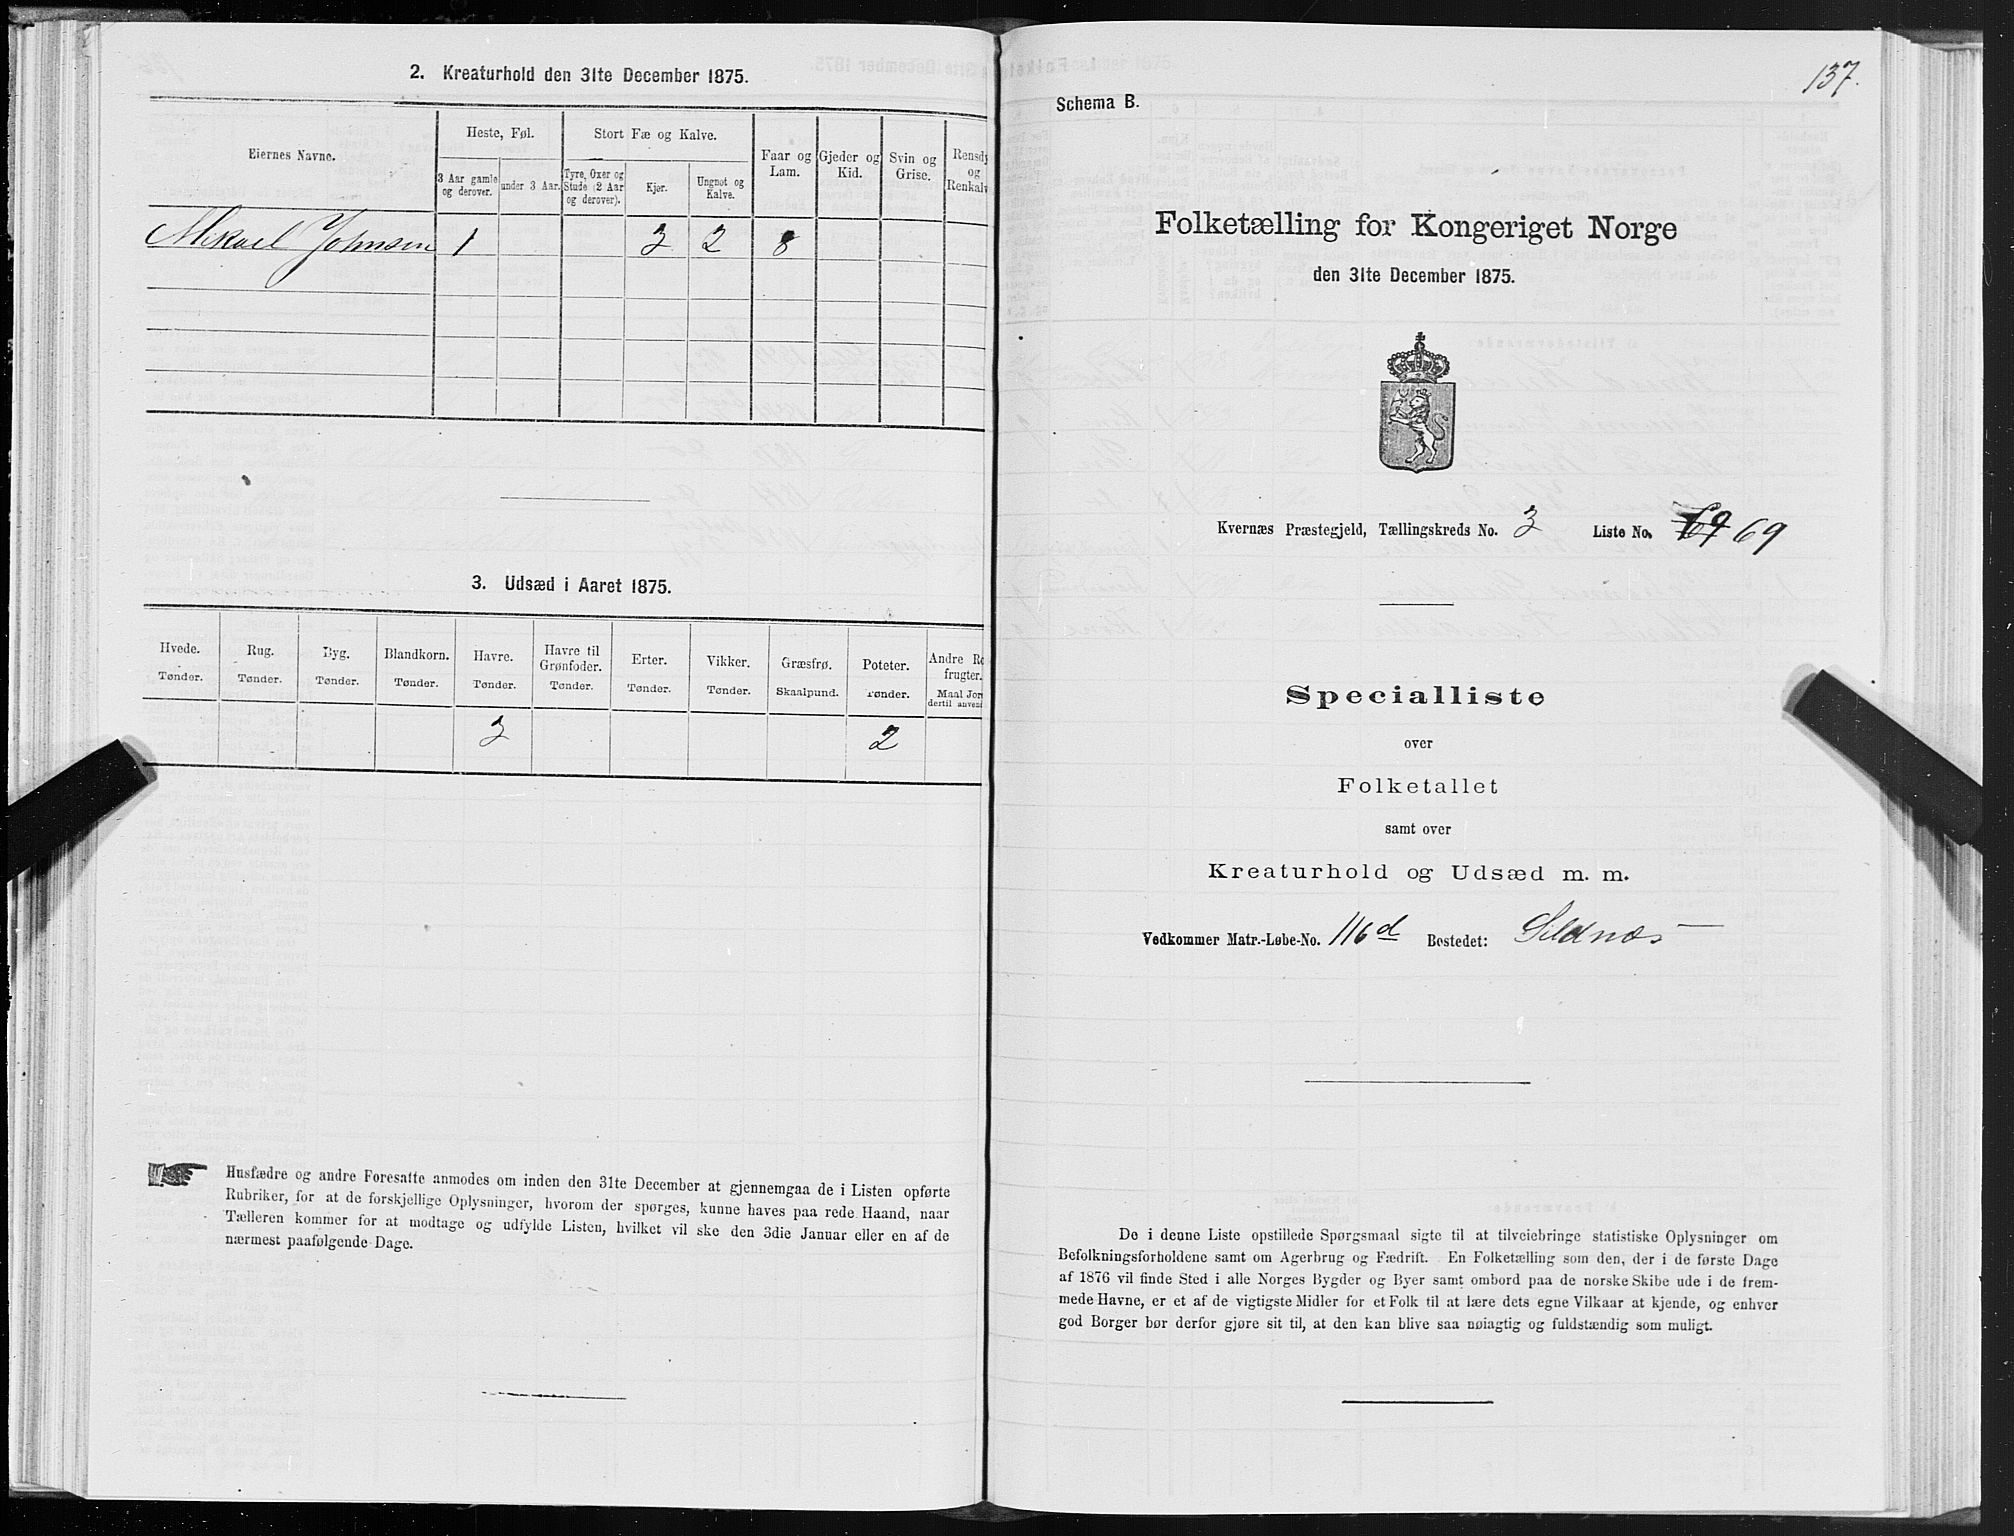 2. Kreaturhold den 31te December 1875.
Eiernes Navne.
Heste, Føl.
Stort Fæ og Kalve.
Faar og Lam.
Gjeder og Kid.
Svin og Grise.
Rensdy
og
Renkalv
3 Aar gamle og derover.
under 3 Aar.
Tyre, Oxer og Stude (2 Aar og derover).
Kjør.
Ungnøt og Kalve.
Mikael Johnsen 1 3 2 8
3. Udsæd i Aaret 1875.
Hvede. Rug. Byg. Blandkorn. Havre. Havre til Grønfoder. Erter. Vikker. Græsfrø. Poteter. Andre Ro
frugter.
Tønder. Tønder. Tønder. Tønder. Tønder. Tønder. Tønder. Tønder. Skaalpund. Tønder. Maal Jor
dertil anven
3 2
Husfædre og andre Foresatte anmodes om inden den 31te December at gjennemgaa de i Listen opførte
Rubriker, for at de forskjellige Oplysninger, hvorom der spørges, kunne haves paa rede Haand, naar
Tælleren kommer for at modtage og udfylde Listen, hvilket vil ske den 3die Januar eller en af de
nærmest paafølgende Dage.
137.
Schema B.
Folketælling for Kongeriget Norge
den 31te December 1875.
Kvernæs Præstegjeld, Tællingskreds No. 3 Liste No. 69
Specialliste
over
Folketallet
samt over
Kreaturhold og Udsæd m. m.
Vedkommer Matr.-Løbe-No. 116d Bostedet: Sildnæs
De i denne Liste opstillede Spørgsmaal sigte til at tilveiebringe statistiske Oplysninger om
Befolkningsforholdene samt om Agerbrug og Fædrift. En Folketælling som den, der i de første Dage
af 1876 vil finde Sted i alle Norges Bygder og Byer samt ombord paa de norske Skibe ude i de frem-
mede Havne, er et af de vigtigste Midler for et Folk til at lære dets egne Vilkaar at kjende, og enhver
god Borger bør derfor gjøre sit til, at den kan blive saa nøiagtig og fuldstændig som muligt.